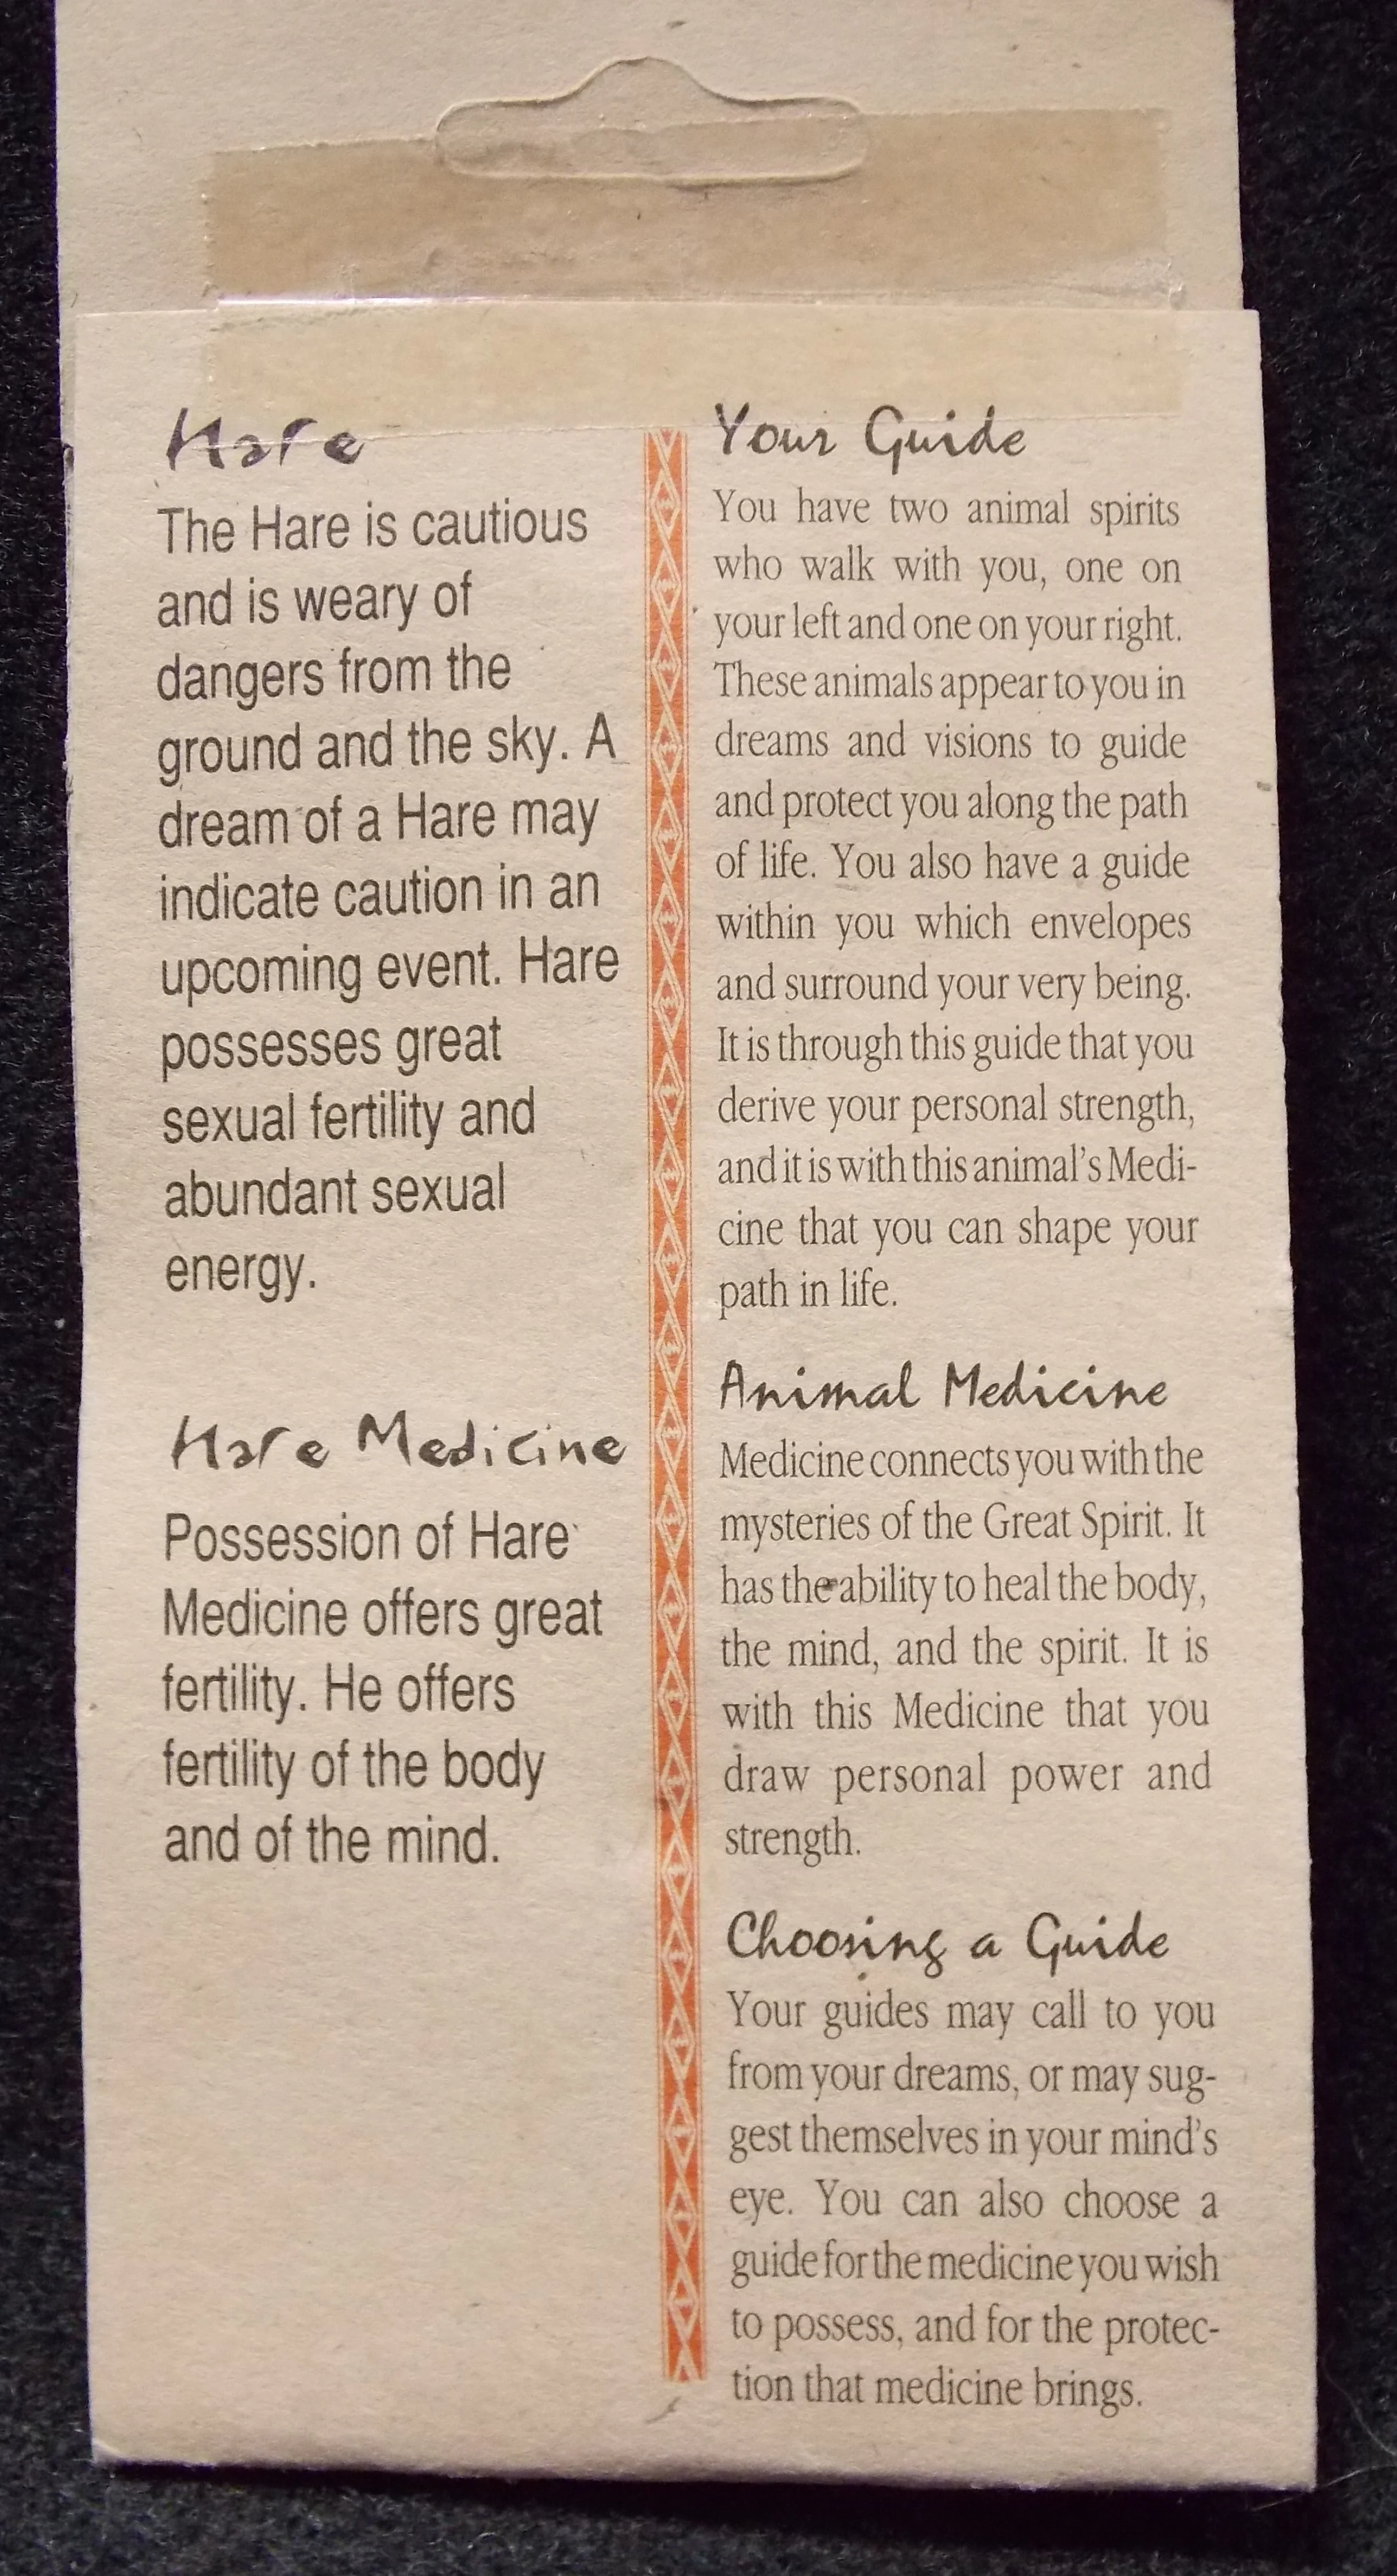 Hare
The Hare is cautious
and is weary of
dangers from the
ground and the sky. A
dream of a Hare may
indicate caution in an
upcoming event. Hare
possesses great
sexual fertility and
abundant sexual
energy.
Hare Medicine
Possession of Hare
Medicine offers great
fertility. He offers
fertility of the body
and of the mind.
Your Guide
You have two animal spirits
who walk with you, one on
your left and one on your right.
These animals appear to you in
dreams and visions to guide
and protect you along the path
of life. You also have a guide
within you which envelopes
and surround your very being.
It is through this guide that you
derive your personal strength,
and it is with this animal's Medi-
cine that you can shape your
path in life.
Animal Medicine
Medicine connects you with the
mysteries of the Great Spirit. It
has the ability to heal the body,
the mind, and the spirit. It is
with this Medicine that you
draw personal power and
strength.
Choosing a Guide
Your guides may call to you
from your dreams, or may sug-
gest themselves in your mind's
eye. You can also choose a
guide for the medicine you wish
to possess, and for the protec-
tion that medicine brings.